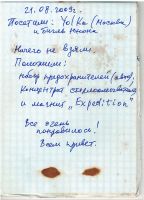 21.08.2009г.
Посетили: Yo!Ka (Москва)
и Бигль Юнона.
Ничего не взяли.
Положили:
набор предохранителей (авто),
концентрат стеклоомывателя
и магнит „Expedition"
Все очень
понравилось!
Всем привет.